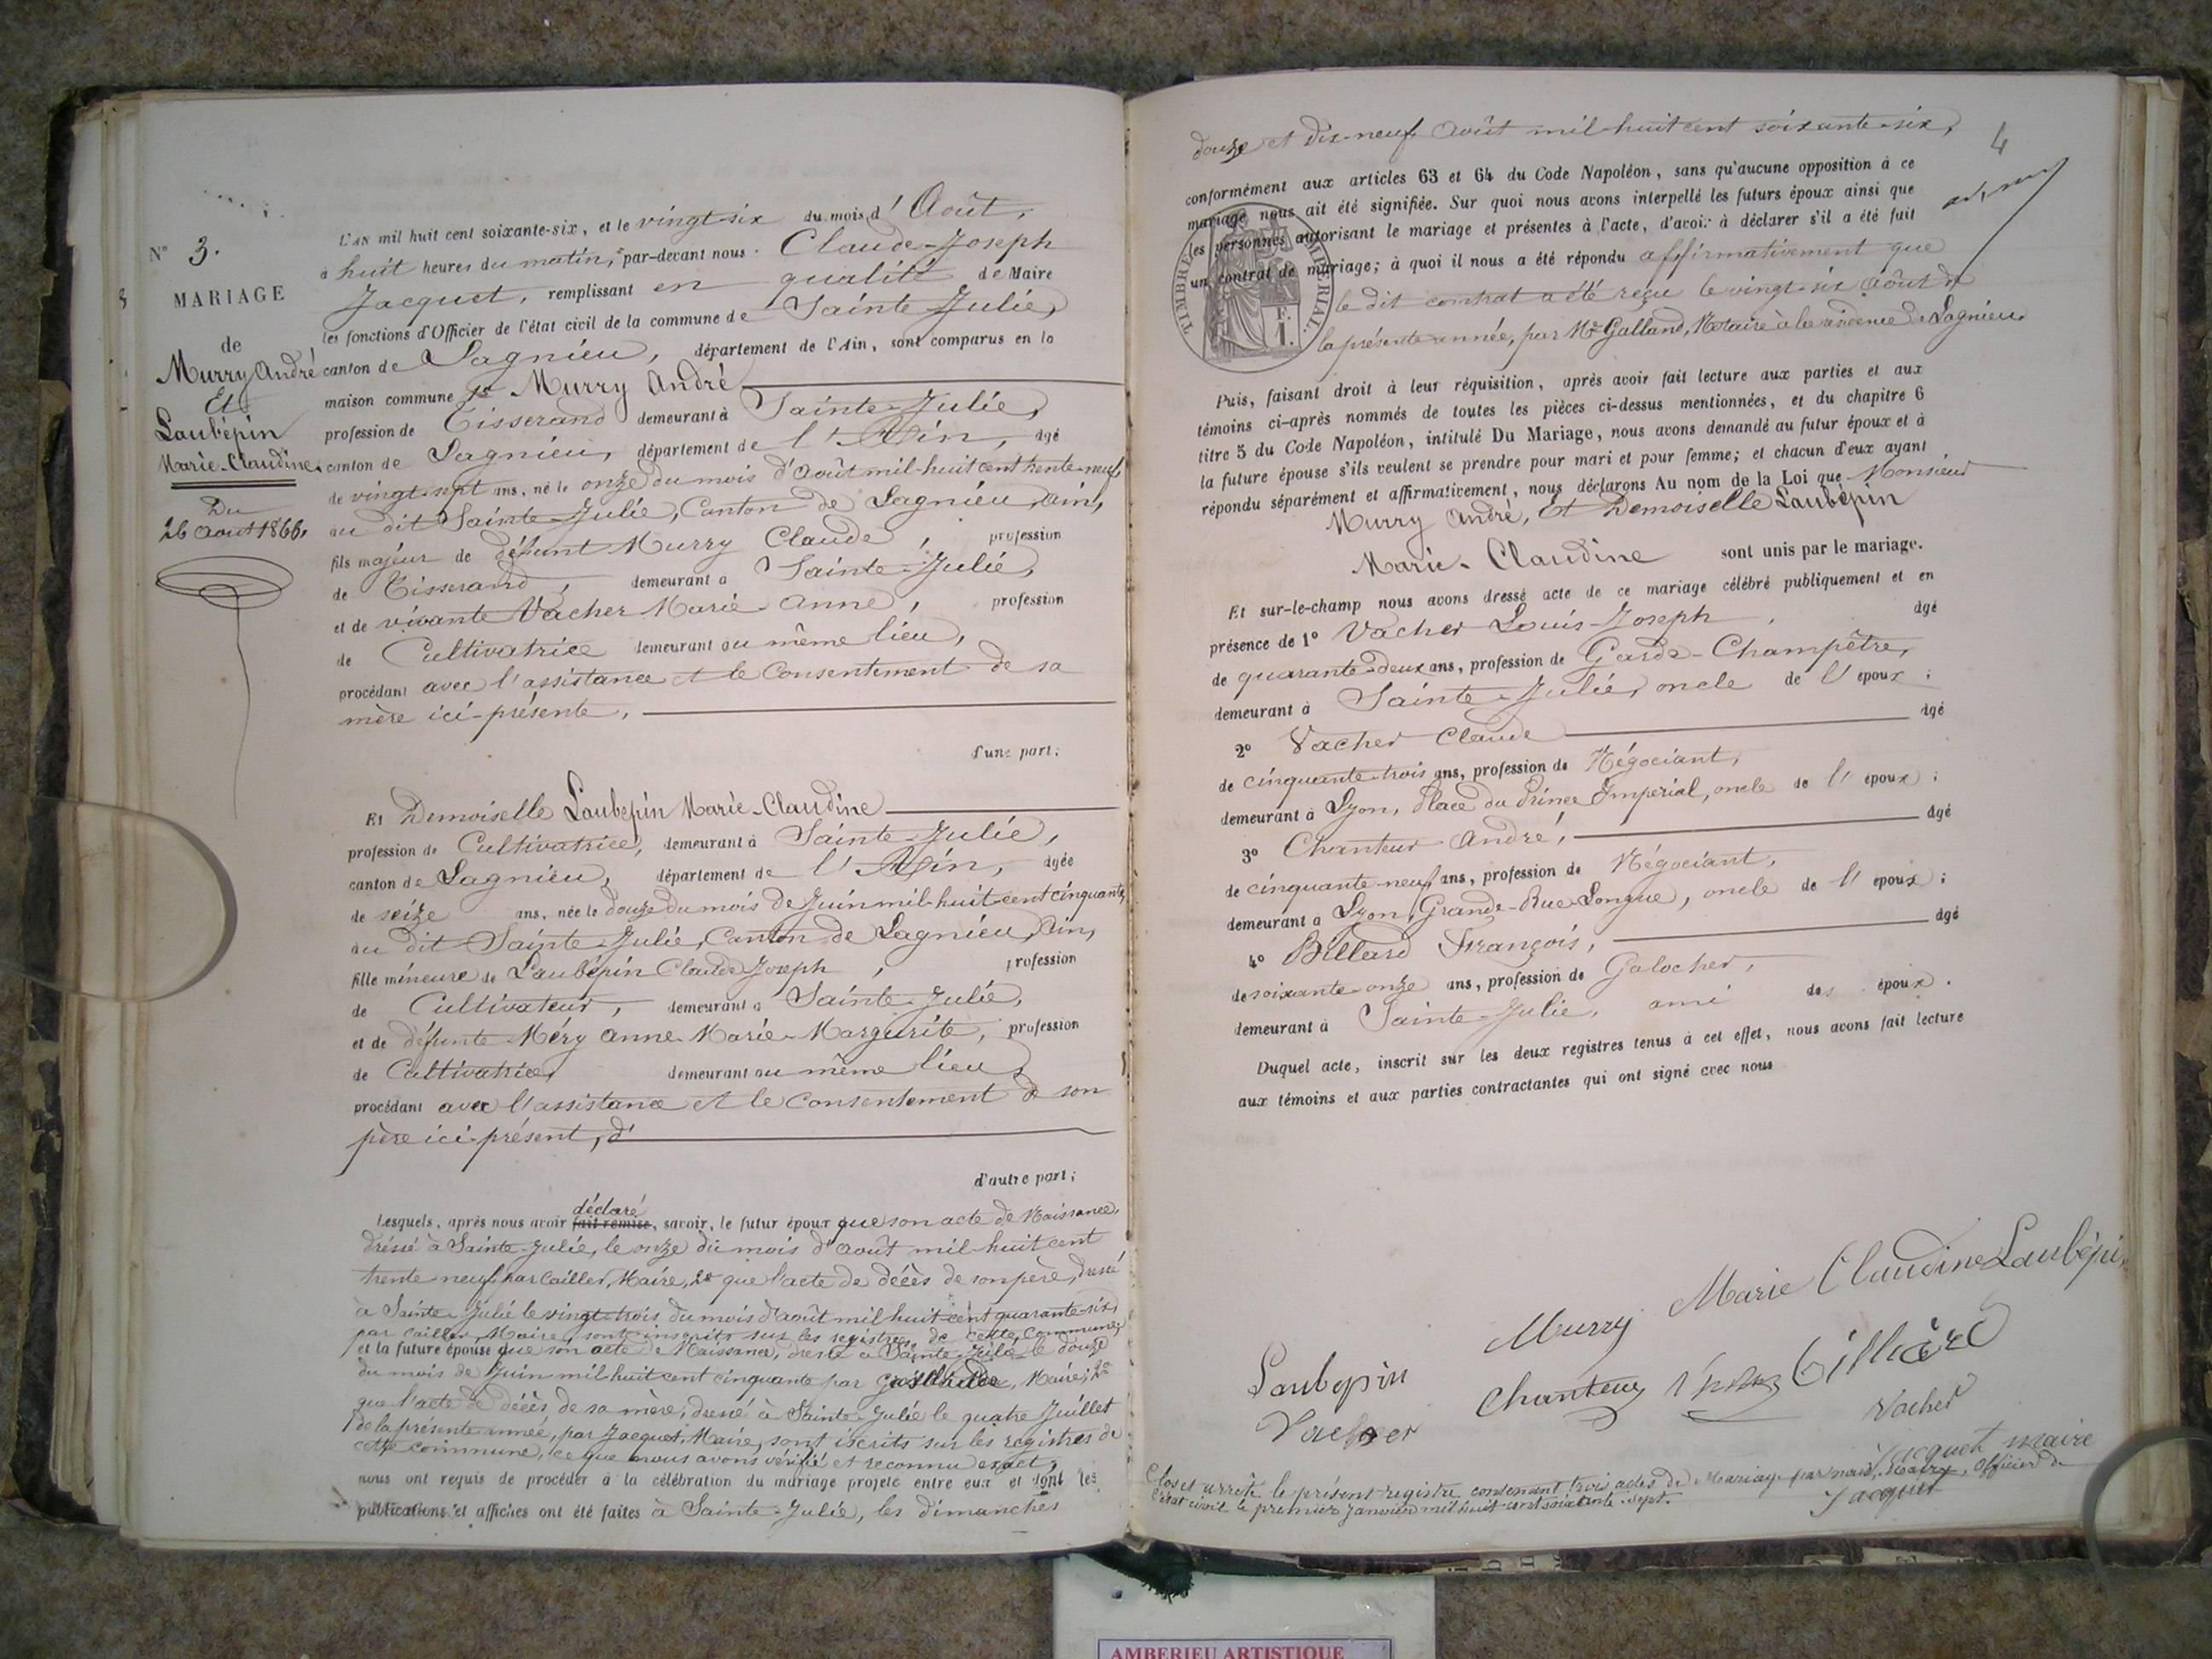 N° 3.
MARIAGE
de
Murry André
Et
Laubépin
Marie-Claudine.
Du
26 Août 1866.
L'AN mil huit cent soixante-six, et le vingt-six du mois d'Août,
à huit heures du matin, par-devant nous Claude-Joseph
Jacquet, remplissant en qualité de Maire
les fonctions d'Officier de l'état civil de la commune de Sainte-Julie,
canton de Lagnieu, département de l'Ain, sont comparus en la
maison commune 1° Murry André
profession de Tisserand demeurant à Sainte-Julie,
canton de Lagnieu, département de l'Ain, âgé
de vingt-sept ans, né le onze du mois d'Août mil-huit cent trente-neuf
au dit Sainte-Julie, Canton de Lagnieu, Ain,
fils majeur de défunt Murry Claude, profession
de Tisserand, demeurant à Sainte-Julie,
et de vivante Vacher Marie-Anne, profession
de Cultivatrice demeurant au même lieu,
procédant avec l'assistance et le Consentement de sa
mère ici-présente,
d'une part;
Et Demoiselle Laubepin Marie-Claudine
profession de Cultivatrice, demeurant à Sainte-Julie,
canton de Lagnieu, département de l'Ain, âgée
de seize ans, née le douze du mois de Juin mil-huit-cent cinquante
au dit Sainte-Julie, Canton de Lagnieu, Ain,
fille mineure de Laubépin Claude Joseph, profession
de Cultivateur, demeurant à Sainte-Julie,
et de défunte Méry Anne-Marie-Margurite, profession
de Cultivatrice, demeurant au même lieu,
procédant avec l'assistance et le Consentement de son
père ici-présent, d'
d'autre part;
déclaré
Lesquels, après nous avoir fait remise, savoir, le futur époux que son acte de Naissance,
dréssé à Sainte-Julie, le onze du mois d'août mil-huit cent
trente-neuf par Cailler, Maire, 2° que l'acte de décès de son père, dressé
à Sainte-Julie le vingt-trois du mois d'août mil huit-cent quarante-six,
par Cailler, Maire, sont inscrits sur les registres de cette Commune,
et la future épouse que son acte de Naissance, dressé à Sainte-Julie le douze
du mois de Juin mil-huit cent cinquante par Maire; 2°
que l'acte de décès de sa mère, dressé à Sainte-Julie le quatre Juillet
de la présente année, par Jacquet, Maire, sont iscrits sur les registres de
cette commune, ce que nous avons vérifié et reconnu exact,
nous ont requis de procéder à la célébration du mariage projeté entre eux et dont les
publications et affiches ont été faites à Sainte-Julie, les dimanches
4
douze et dix-neuf Août mil-huit cent soixante-six,
conformément aux articles 63 et 64 du Code Napoléon, sans qu'aucune opposition à ce
mariage nous ait été signifiée. Sur quoi nous avons interpellé les futurs époux ainsi que
les personnes autorisant le mariage et présentes à l'acte, d'avoir à déclarer s'il a été fait
un contrat de mariage; à quoi il nous a été répondu affirmativement que
le dit contrat a été reçu le vingt-six Août de
la présente année, par Me Galland, Notaire à la résidence de Lagnieu.
TIMBRE IMPÉRIAL.
F.
1.
Puis, faisant droit à leur réquisition, après avoir fait lecture aux parties et aux
témoins ci-après nommés de toutes les pièces ci-dessus mentionnées, et du chapitre 6
titre 5 du Code Napoléon, intitulé Du Mariage, nous avons demandé au futur époux et à
la future épouse s'ils veulent se prendre pour mari et pour femme; et chacun d'eux ayant
répondu séparément et affirmativement, nous déclarons Au nom de la Loi que Monsieur
Murry André, Et Demoiselle Laubépin
Marie-Claudine sont unis par le mariage.
Et sur-le-champ nous avons dressé acte de ce mariage célébré publiquement et en
présence de 1° Vacher Louis-Joseph, âgé
de quarante-deux ans, profession de Garde-Champêtre,
demeurant à Sainte-Julie, oncle de l'époux;
2° Vacher Claude âgé
de cinquante-trois ans, profession de Négociant,
demeurant à Lyon, Place du Prince Impérial, oncle de l'époux;
3° Chanteur André, âgé
de cinquante-neuf ans, profession de Négociant,
demeurant à Lyon, Grande-Rue-Longue, oncle de l'époux;
4° Billard François, âgé
de soixante-onze ans, profession de Galocher,
demeurant à Sainte-Julie, ami des époux.
Duquel acte, inscrit sur les deux registres tenus à cet effet, nous avons fait lecture
aux témoins et aux parties contractantes qui ont signé avec nous
Marie Claudine Laubépin
Murry
Laubepin
Chanteur
Vacher
Vacher
Jacquet maire
Clos et arrêté le présent registre contenant trois actes de Mariage par nous, Maire, Officier de
l'état civil le premier Janvier mil huit-cent soixante-sept.
Jacquet
AMBERIEU ARTISTIQUE